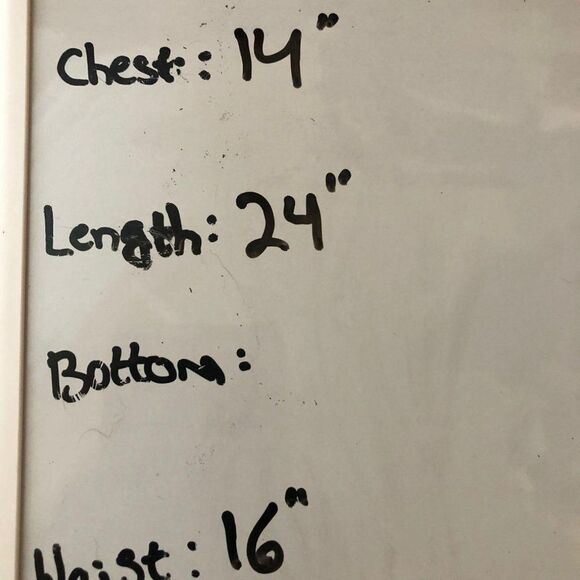 Chest: 14"
Length: 24"
Bottom:
Waist: 16"